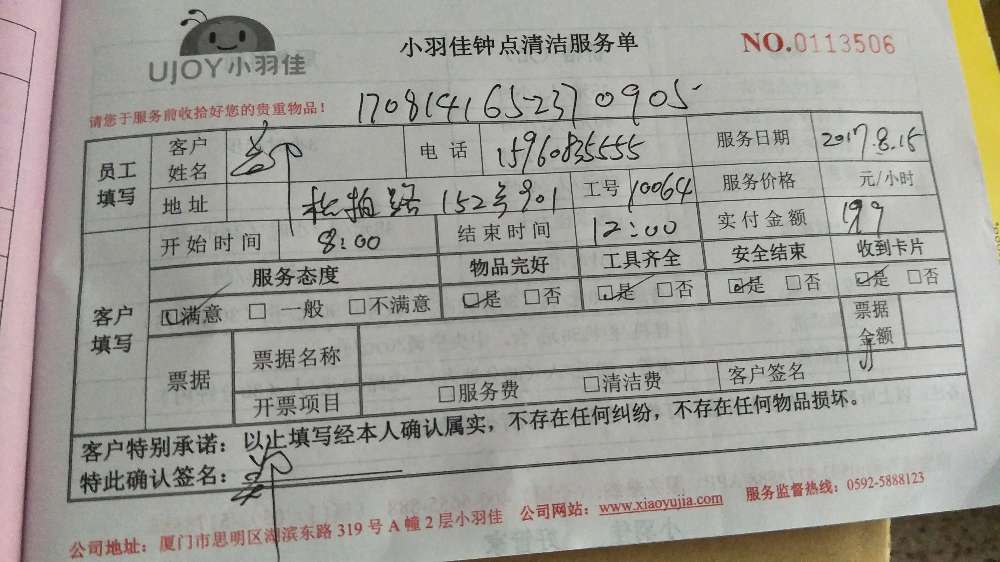 UJOY小羽佳
小羽佳钟点清洁服务单
NO.0113506
请您于服务前收拾好您的贵重物品！
170814165237 0905
员工填写 客户姓名 电话 15960835555 服务日期 2017.8.15
地址 152号901 工号 10064 服务价格 元/小时
开始时间 8:00 结束时间 12:00 实付金额 199
客户填写 服务态度 物品完好 工具齐全 安全结束 收到卡片
满意 一般 不满意 是 否 是 否 是 否 是 否
票据 票据名称 票据金额
开票项目 服务费 清洁费 客户签名
客户特别承诺：以上填写经本人确认属实，不存在任何纠纷，不存在任何物品损坏。
特此确认签名：
公司地址：厦门市思明区湖滨东路319号A幢2层小羽佳 公司网站：www.xiaoyujia.com 服务监督热线：0592-5888123